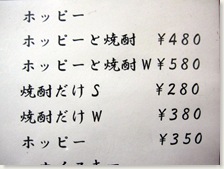 ホッピー
ホッピーと焼酎 ¥480
ホッピーと焼酎W ¥580
焼酎だけS ¥280
焼酎だけW ¥380
ホッピー ¥350